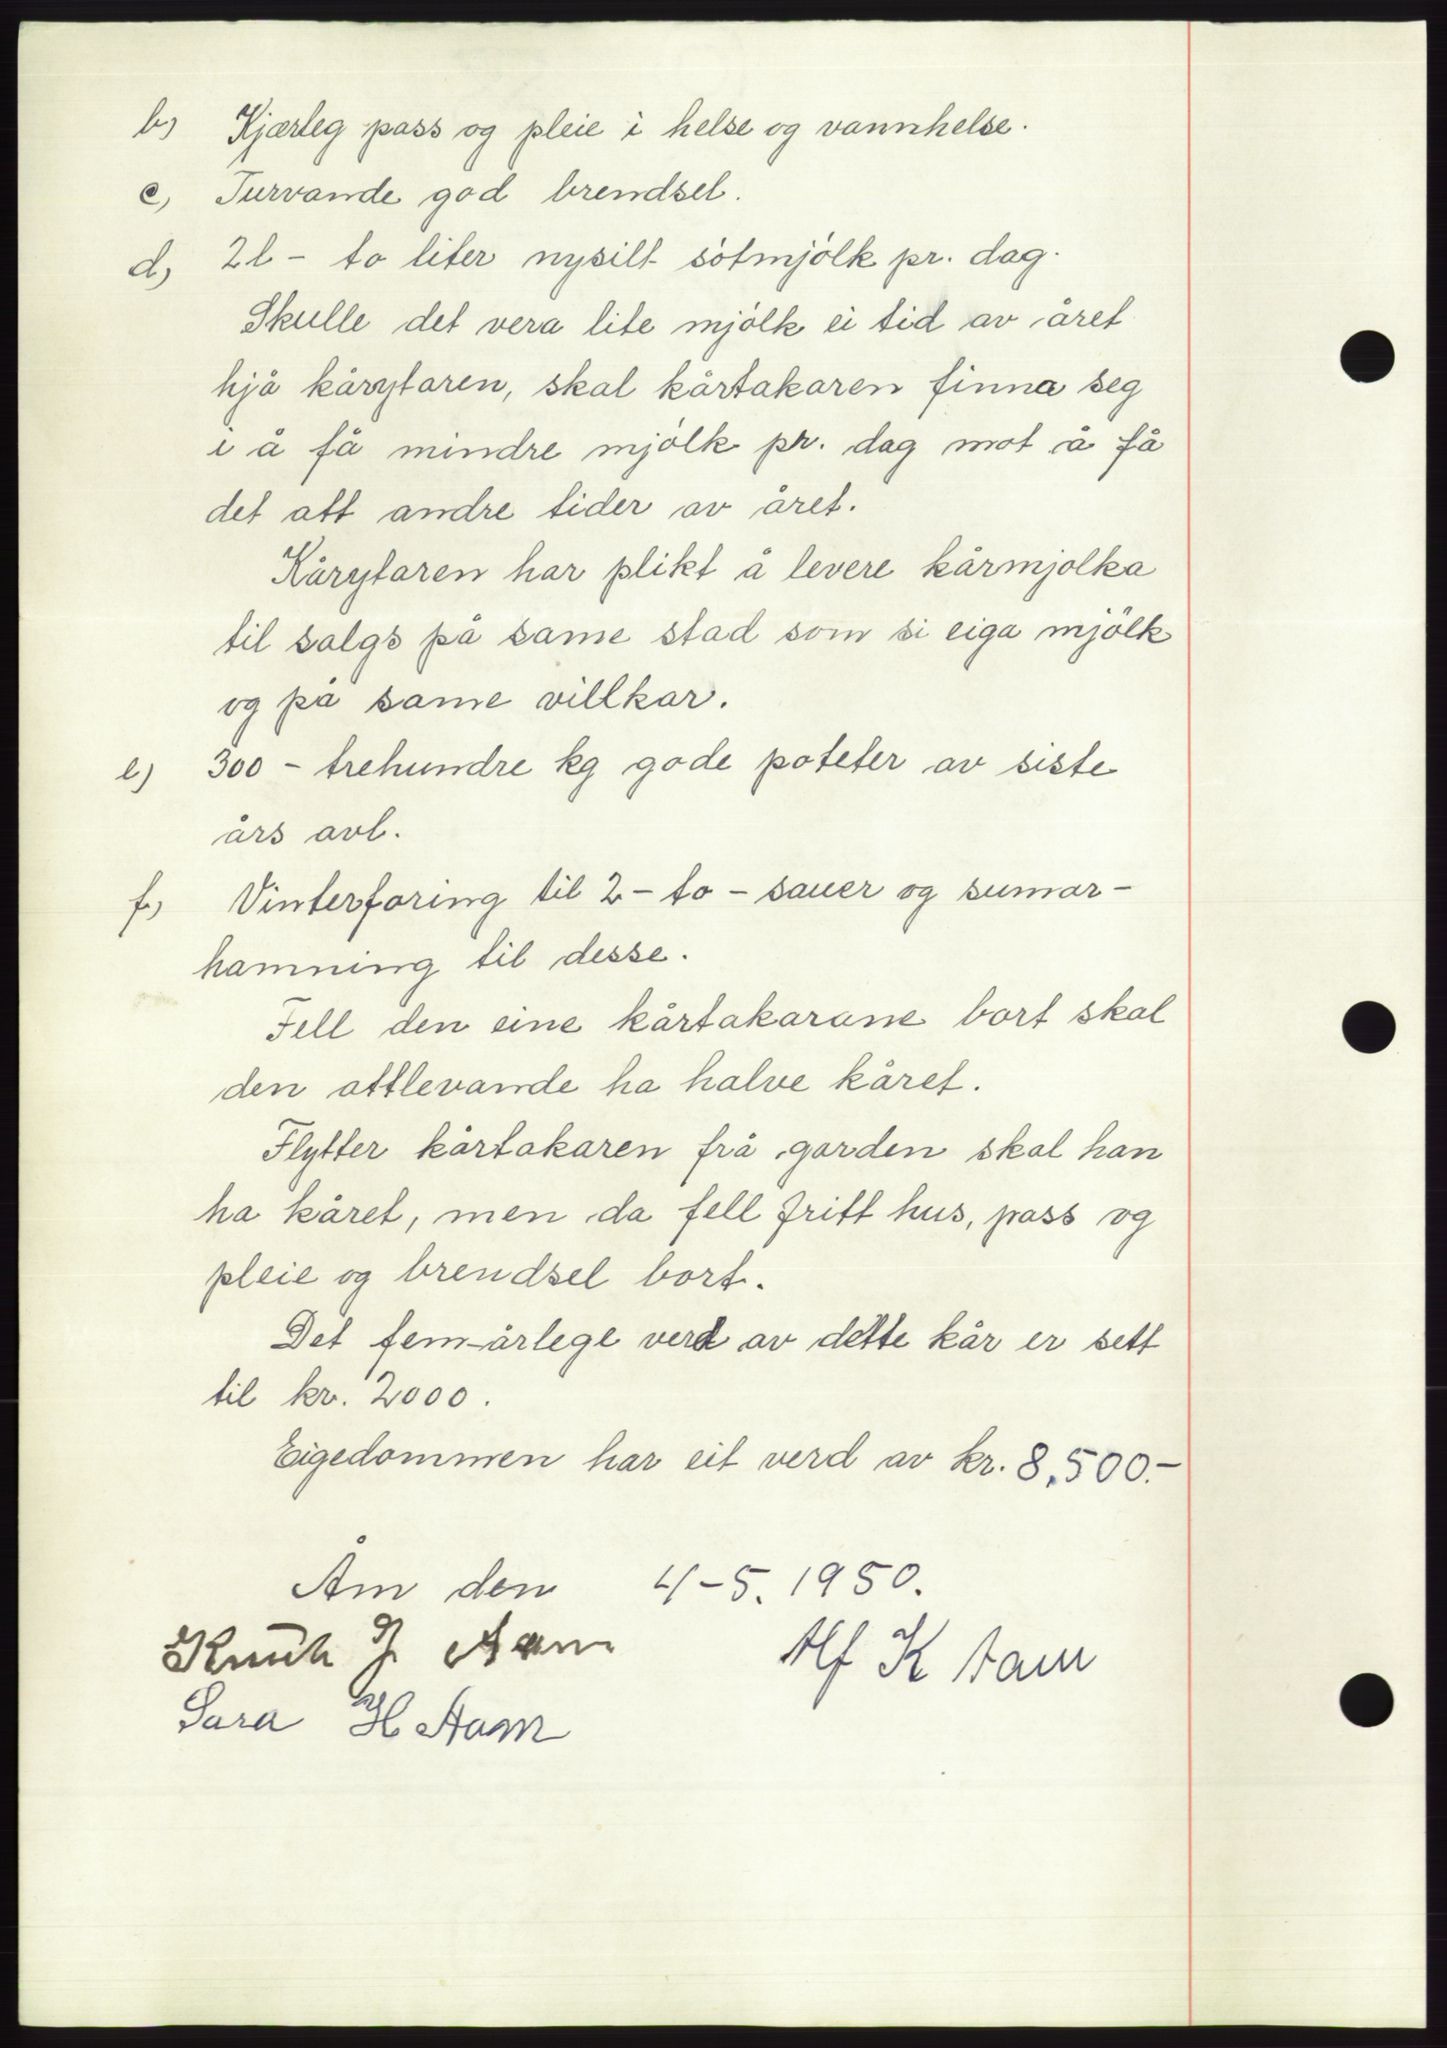 b) Kjærleg pass og pleie i helse og vannhelse.
c) Turvande god brendsel.
d) 2 l - to liter nysilt søtmjólk pr. dag.
Skulle det vera lite mjólk ei tid av året
hjå kårytaren, skal kårtakaren finna seg
i å få mindre mjólk pr. dag mot å få
det att andre tider av året.
Kårytaren har plikt å levere kårmjolka
til salgs på same stad som si eiga mjölk
og på same villkar.
e) 300 - trehundre kg gode poteter av siste
års avl.
f) Vinterforing til 2 - to - sauer og sumar-
hamning til desse.
Fell den eine kårtakarane bort skal
den attlevande ha halve kåret.
Flytter kårtakaren frå garden skal han
ha kåret, men da fell fritt hus, pass og
pleie og brendsel bort.
Det fem-årlege verd av dette kår er sett
til kr. 2000.
Eigedommen har eit verd av kr. 8,500.-
Åm den 4-5. 1950.
Knut J Aam Alf K Aam
Sara H Aam